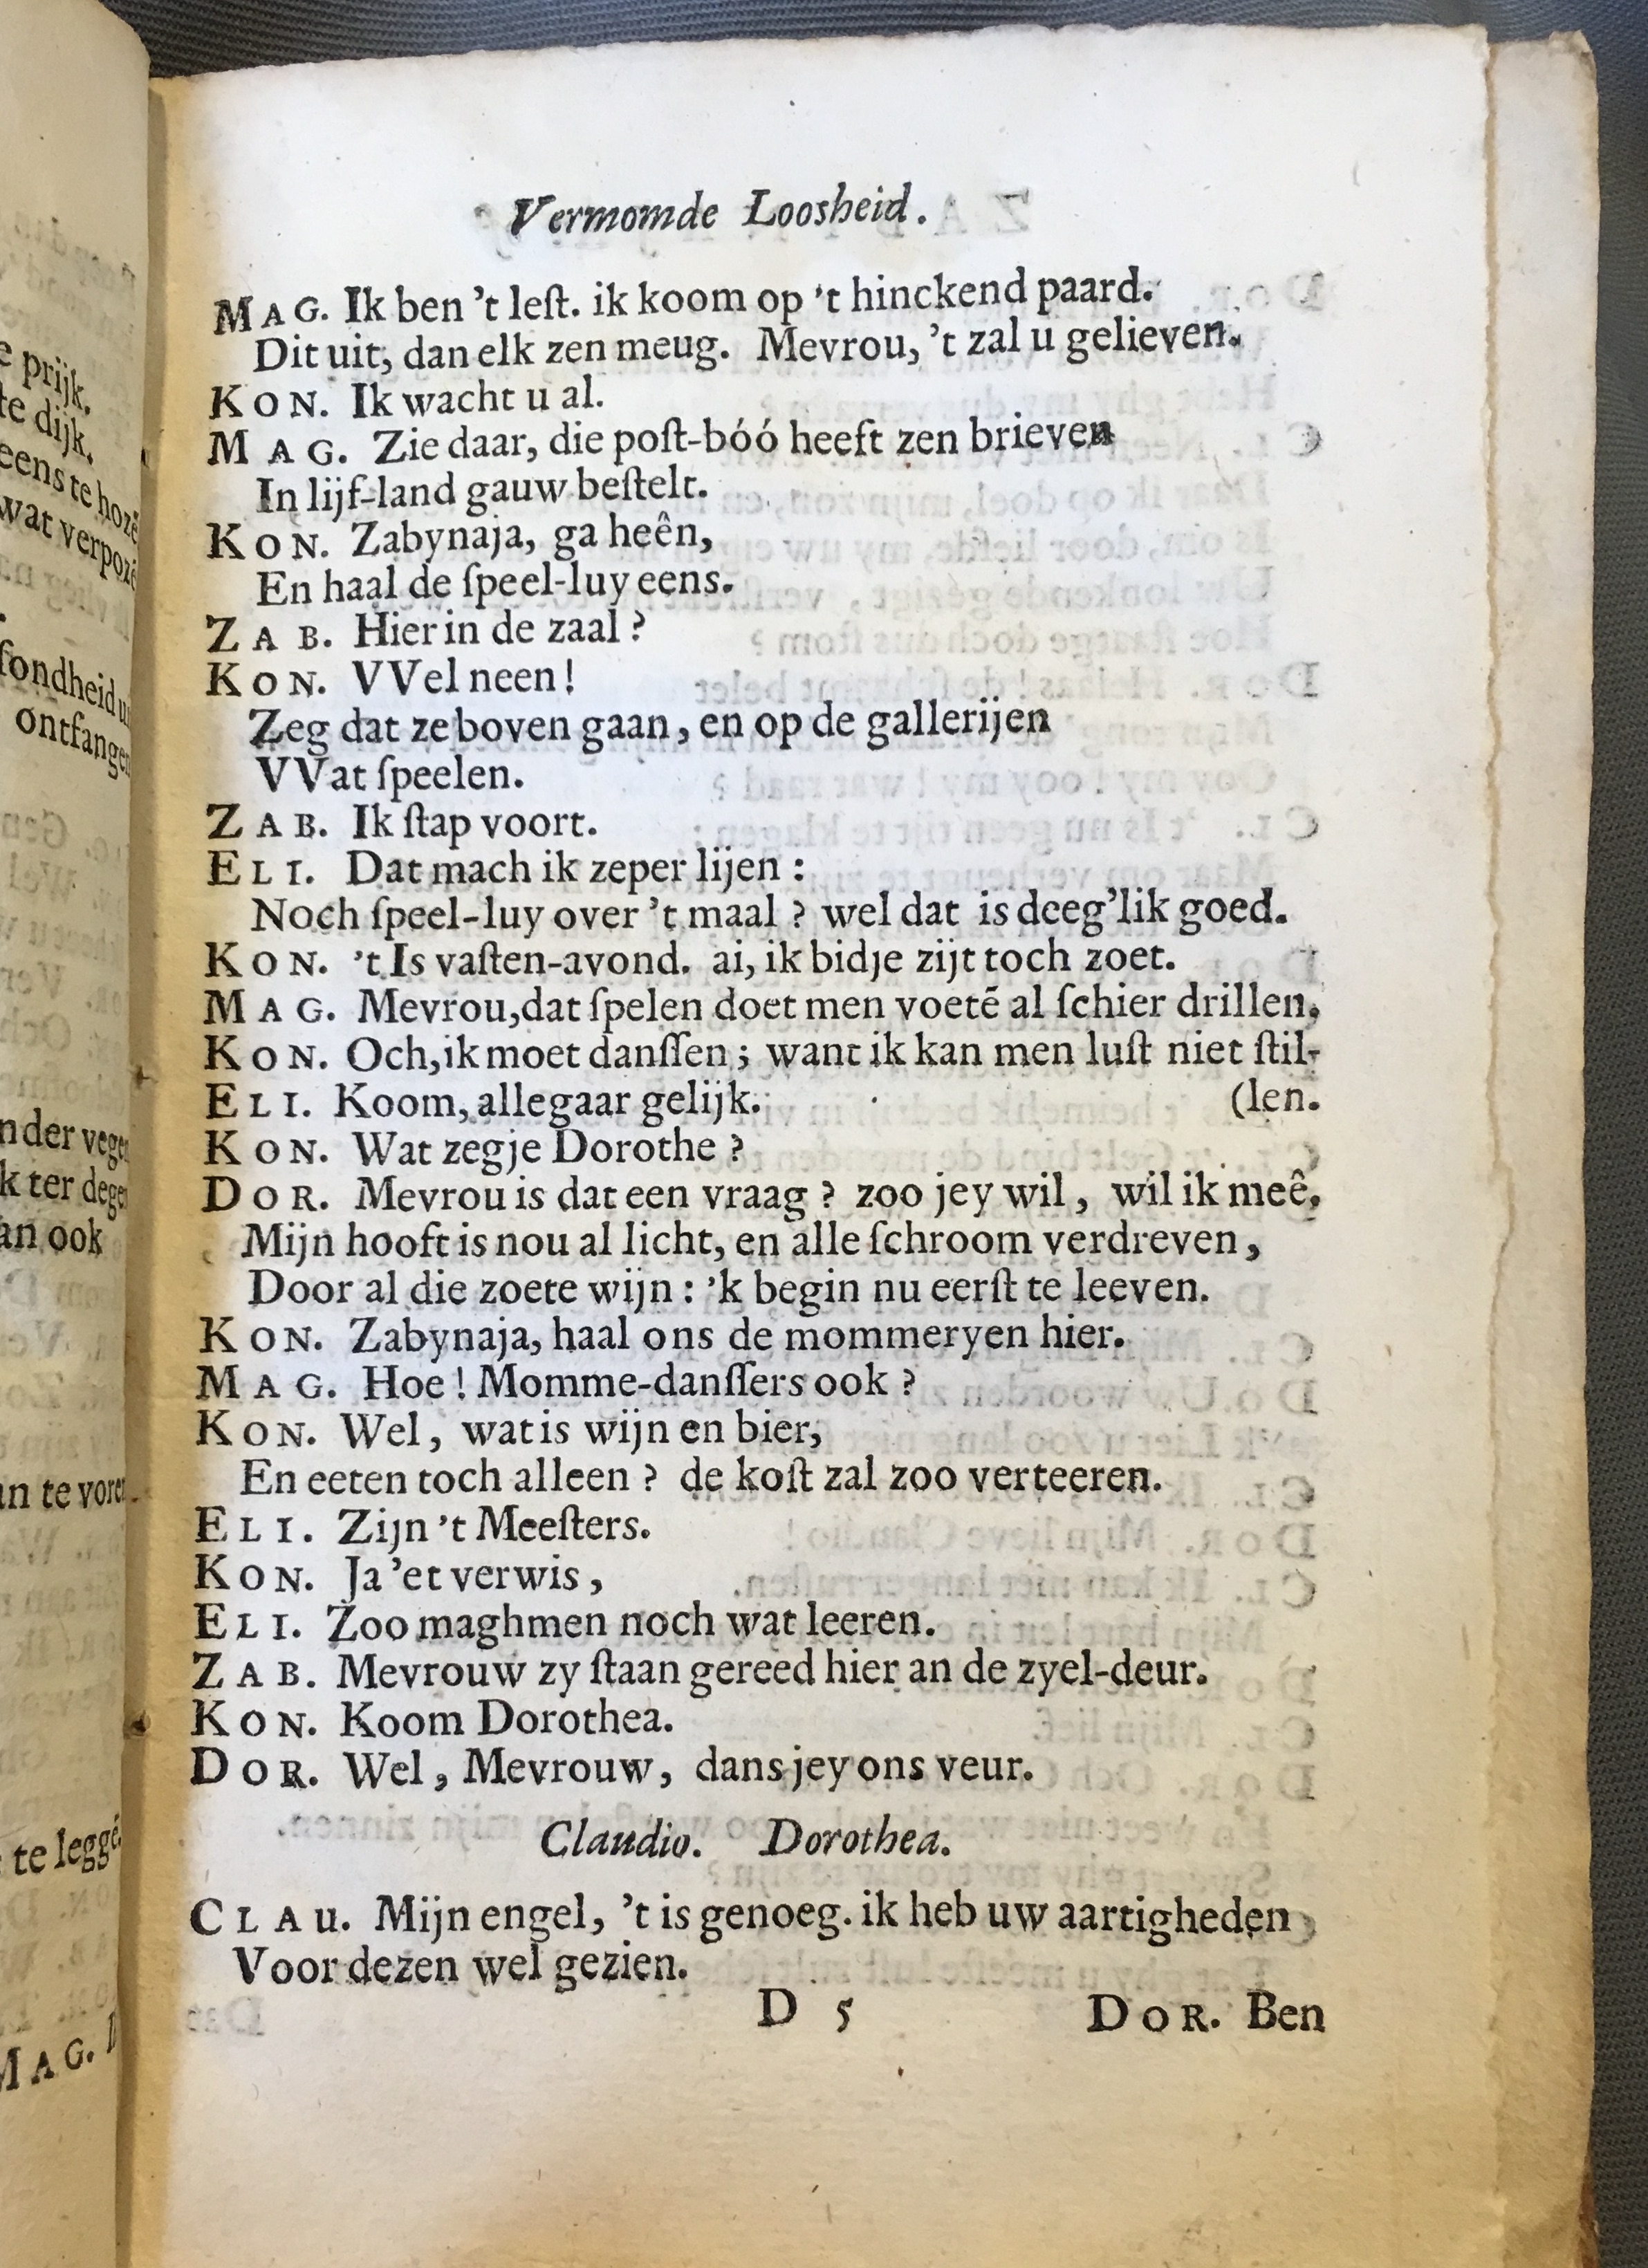 Vermomde Loosheid.
MAG. Ik ben 't leſt. ik koom op 't hinckend paard.
Dit uit, dan elk zen meug. Mevrou, 't zal u gelieven.
KON. Ik wacht u al.
MAG. Zie daar, die poſt-bóó heeft zen brieven
In lijf-land gauw beſtelt.
KON. Zabynaja, ga heên,
En haal de ſpeel-luy eens.
ZAB. Hier in de zaal?
KON. VVel neen!
Zeg dat ze boven gaan, en op de gallerijen
VVat ſpeelen.
ZAB. Ik ſtap voort.
ELI. Dat mach ik zeper lijen:
Noch ſpeel-luy over 't maal? wel dat is deeg'lik goed.
KON. 't Is vaſten-avond. ai, ik bidje zijt toch zoet.
MAG. Mevrou, dat ſpelen doet men voetē al ſchier drillen.
KON. Och, ik moet danſſen; want ik kan men luſt niet ſtil-
ELI. Koom, allegaar gelijk. (len.
KON. Wat zegje Dorothe?
DOR. Mevrou is dat een vraag? zoo jey wil, wil ik meê,
Mijn hooft is nou al licht, en alle ſchroom verdreven,
Door al die zoete wijn: 'k begin nu eerſt te leeven.
KON. Zabynaja, haal ons de mommeryen hier.
MAG. Hoe! Momme-danſſers ook?
KON. Wel, wat is wijn en bier,
En eeten toch alleen? de koſt zal zoo verteeren.
ELI. Zijn 't Meeſters.
KON. Ja 'et verwis,
ELI. Zoo maghmen noch wat leeren.
ZAB. Mevrouw zy ſtaan gereed hier an de zyel-deur.
KON. Koom Dorothea.
DOR. Wel, Mevrouw, dans jey ons veur.
Claudio. Dorothea.
CLAU. Mijn engel, 't is genoeg. ik heb uw aartigheden
Voor dezen wel gezien.
D 5 DOR. Ben